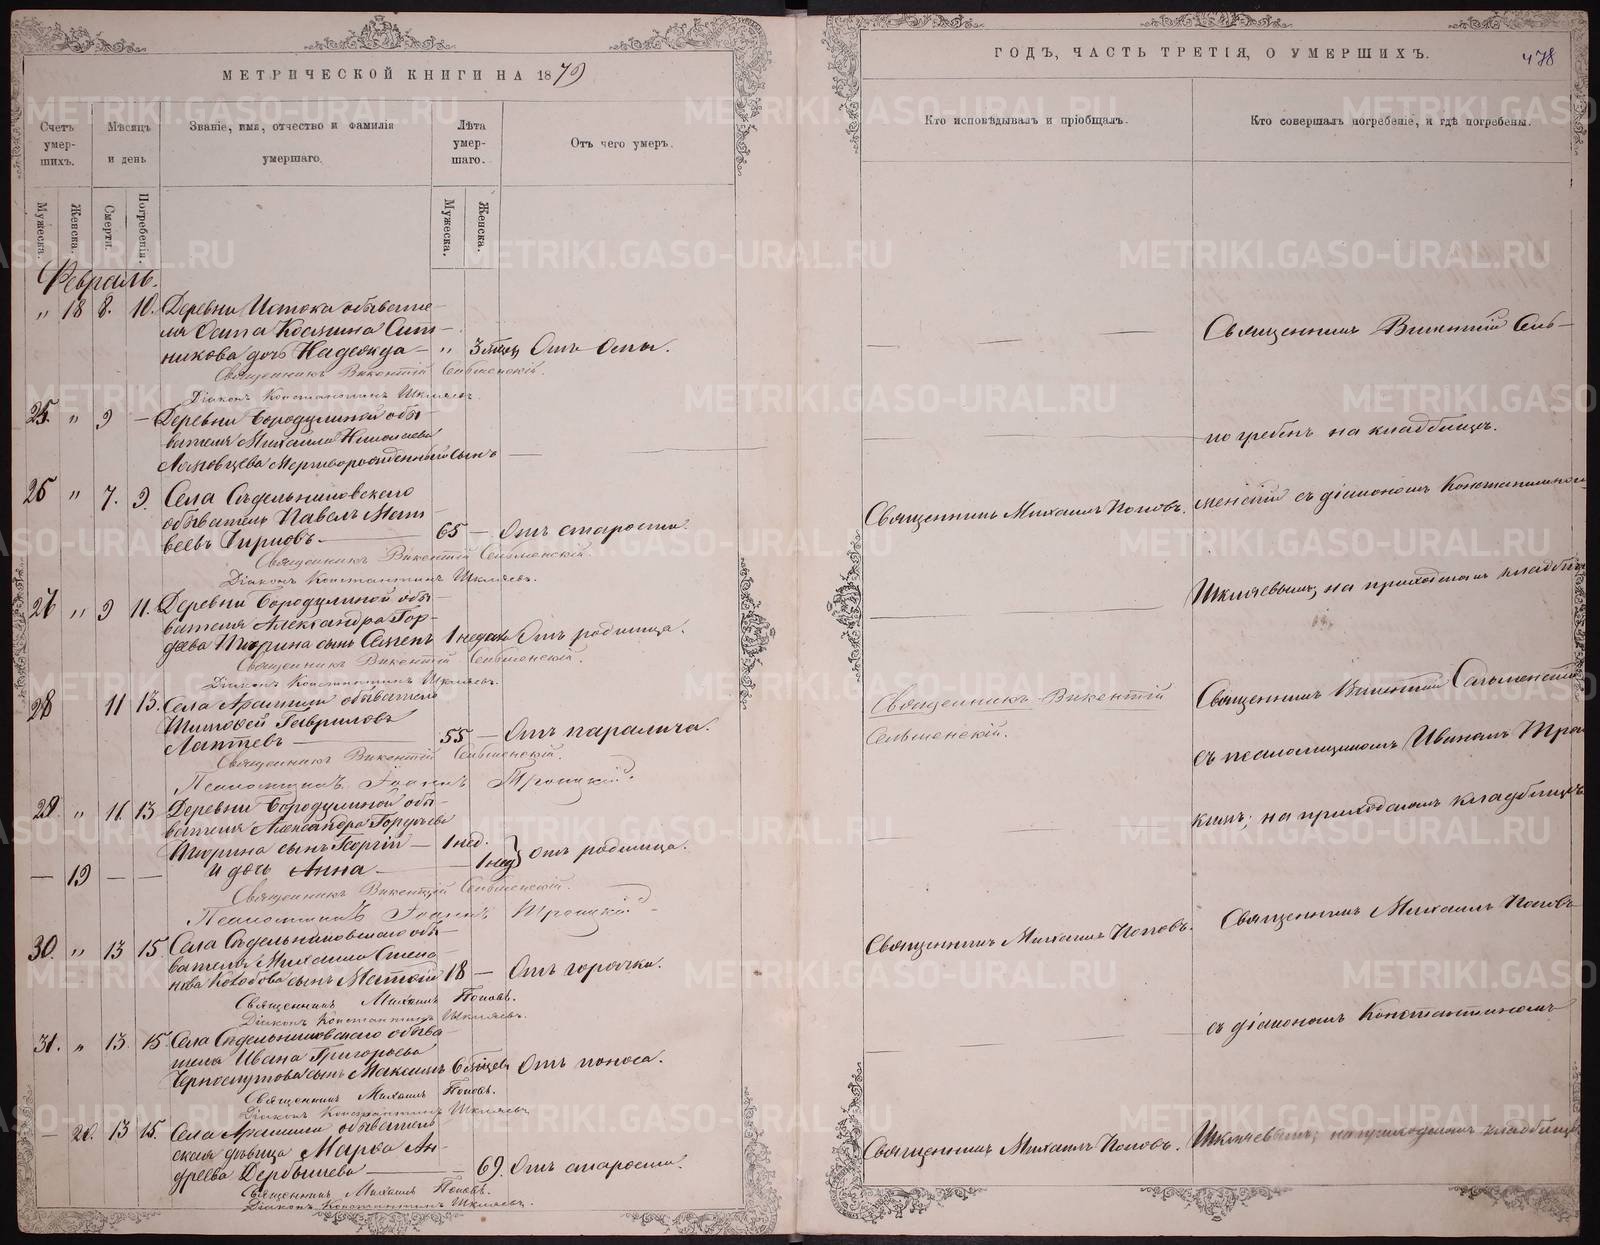 МЕТРИЧЕСКОЙ КНИГИ НА 1879
Счетъ умер-шихъ.
Мѣсяцъ и день
Званіе, имя, отчество и фамилія умершаго.
Лѣта умер-шаго.
Отъ чего умеръ.
Мужеска.
Женска.
Смерти.
Погребенія.
Мужеска.
Женска.
Февраль.
" 18 8. 10. Деревни Истока обывате-
ля Осипа Козмина Сит-
никова дочь Надежда — " 3 мѣсяц Отъ оспы.
Священникъ Викентій Сельменскій.
Діаконъ Константинъ Шкляевъ.
25. " 9 — Деревни Бородулиной обы-
вателя Михаила Николаева
Мертворожденный сынъ —
26 " 7. 9. Села Сѣдельниковскаго
обыватель Павелъ Мат-
веевъ — 65 — Отъ старости.
Священникъ Викентій Сельменскій.
Діаконъ Константинъ Шкляевъ.
27 " 9 11. Деревни Бородулиной обы-
вателя Александра Гор-
деева Тюрина сынъ Семенъ 1 недели Отъ родимца.
Священникъ Викентій Сельменскій.
Діаконъ Константинъ Шкляевъ.
28 11 13. Села Арамили обыватель
Тимофей Гавриловъ
Лаптевъ — 55 — Отъ паралича.
Священникъ Викентій Сельменскій.
Псаломщикъ Іоаннъ Троицкій.
29 " 11. 13 Деревни Бородулиной обы-
вателя Александра Гордѣева
Тюрина сынъ Георгій — 1 нед.
— 19 — — и дочь Анна — 1 нед } отъ родимца.
Священникъ Викентій Сельменскій.
Псаломщикъ Іоаннъ Троицкій
30. " 13 15. Села Сѣдельниковскаго обы-
вателя Михаила Степа
нова сынъ Матѳей 18 — Отъ горячки.
Священникъ Михаилъ Поповъ.
Діаконъ Константинъ Шкляевъ.
31. " 13. 15. Села Сѣдельниковскаго обыва-
теля Ивана Григорьева
Черноскутова сынъ Максимъ 6 мѣсяцев Отъ поноса.
Священникъ Михаилъ Поповъ.
Діаконъ Константинъ Шкляевъ
— 20. 13 15. Села Арамили обыватель
ская дѣвица Марѳа Ан-
дреева Дербышева — 69. Отъ старости.
Священникъ Михаилъ Поповъ.
Діаконъ Константинъ Шкляевъ.
ГОДЪ, ЧАСТЬ ТРЕТІЯ, О УМЕРШИХЪ.
478
Кто исповѣдывалъ и пріобщалъ.
Кто совершалъ погребеніе, и гдѣ погребены.
Священникъ Викентій Сель-
погребенъ на кладбищѣ.
Священникъ Михаилъ Поповъ.
менскій съ діакономъ Константиномъ
Шкляевымъ, на приходскомъ кладби
Священникъ Викентій
Сельменскій.
Священникъ Викентій Сельменскій
съ псаломщикомъ Иваномъ Трои
кимъ; на приходскомъ кладбищѣ
Священникъ Михаилъ Поповъ.
Священникъ Михаилъ Поповъ
съ діакономъ Константиномъ
Священникъ Михаилъ Поповъ.
Шкляевымъ, на приходскомъ кладбищѣ
METRIKI.GASO-URAL.RU